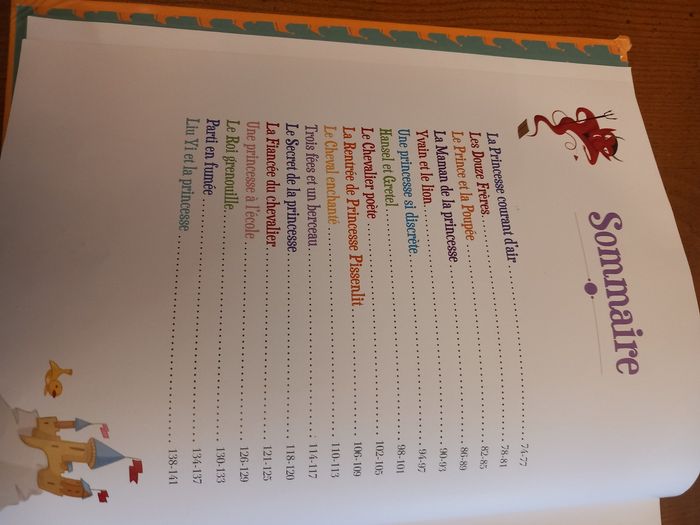 Sommaire
La Princesse courant d'air 74-77
Les Douze Frères 78-81
Le Prince et la Poupée 82-85
La Maman de la princesse 86-89
Yvain et le lion 90-93
Une princesse si discrète 94-97
Hansel et Gretel 98-101
Le Chevalier poète 102-105
La Rentrée de Princesse Pissenlit 106-109
Le Cheval enchanté 110-113
Trois fées et un berceau 114-117
Le Secret de la princesse 118-120
La Fiancée du chevalier 121-125
Une princesse à l'école 126-129
Le Roi grenouille 130-133
Parti en fumée 134-137
Liu Yi et la princesse 138-141